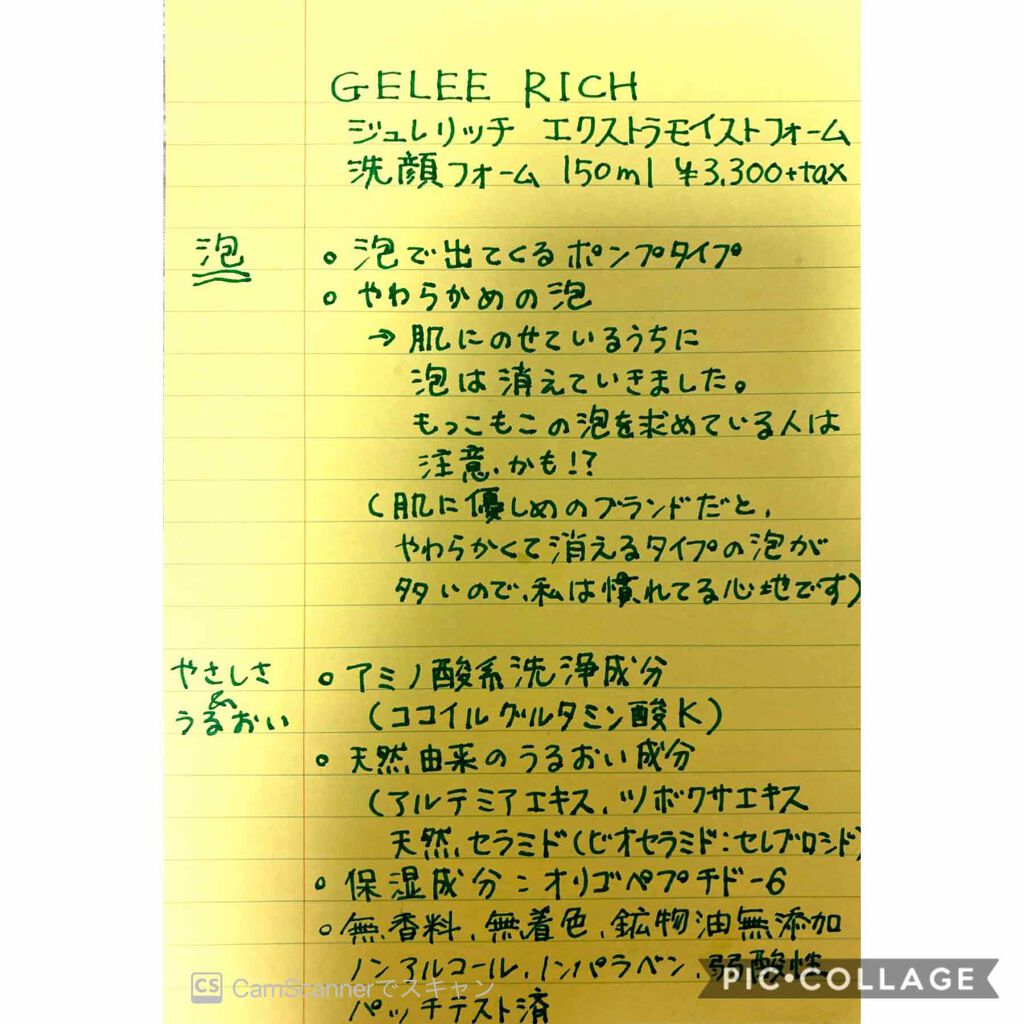 GELEE RICH
ジュレリッチ エクストラモイストフォーム
洗顔フォーム 150ml ¥3,300+tax
泡
○ 泡で出てくるポンプタイプ
○ やわらかめの泡
→ 肌にのせているうちに
泡は消えていきました。
もっこもこの泡を求めている人は
注意かも!?
(肌に優しめのブランドだと、
やわらかくて消えるタイプの泡が
多いので、私は慣れてる心地です)
やさしさ
&
うるおい
○ アミノ酸系洗浄成分
(ココイルグルタミン酸K)
○ 天然由来のうるおい成分
(アルテミアエキス、ツボクサエキス
天然セラミド(ビオセラミド:セレブロシド)
○ 保湿成分:オリゴペプチド-6
○ 無香料、無着色、鉱物油無添加
ノンアルコール、ノンパラベン、弱酸性
パッチテスト済
CS CamScannerでスキャン
PIC•COLLAGE